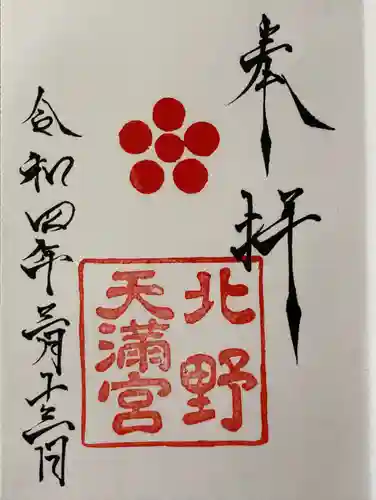 奉拝
北野
天満宮
令和四年二月十三日